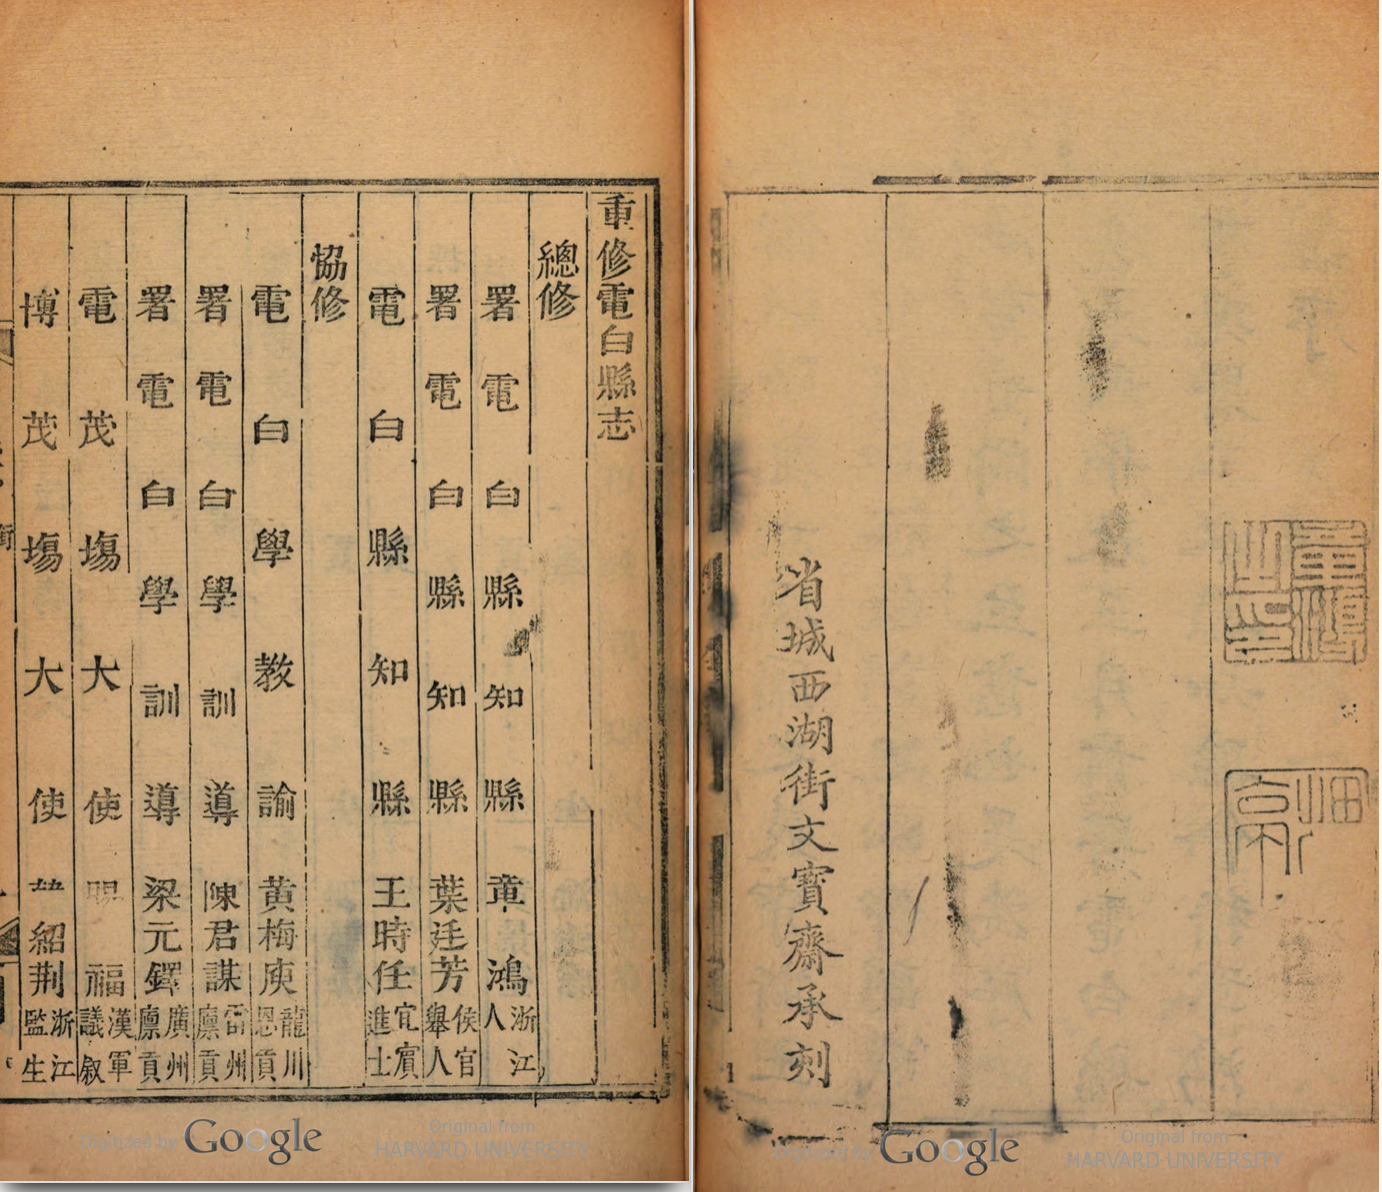 省城西湖街文寶齋承刻
重修電白縣志
總修
署電白縣知縣章鴻浙江人
署電白縣知縣葉廷芳侯官舉人
電白縣知縣王時任宜賓進士
協修
電白學教諭黃梅庾龍川恩貢
署電白學訓導陳君謀雷州廩貢
署電白學訓導梁元鐸廣州廩貢
電茂塲大使 福漢軍議敘
博茂塲大使 紹荆浙江監生
Digitized by Google
Original from
HARVARD UNIVERSITY
Digitized by Google
Original from
HARVARD UNIVERSITY